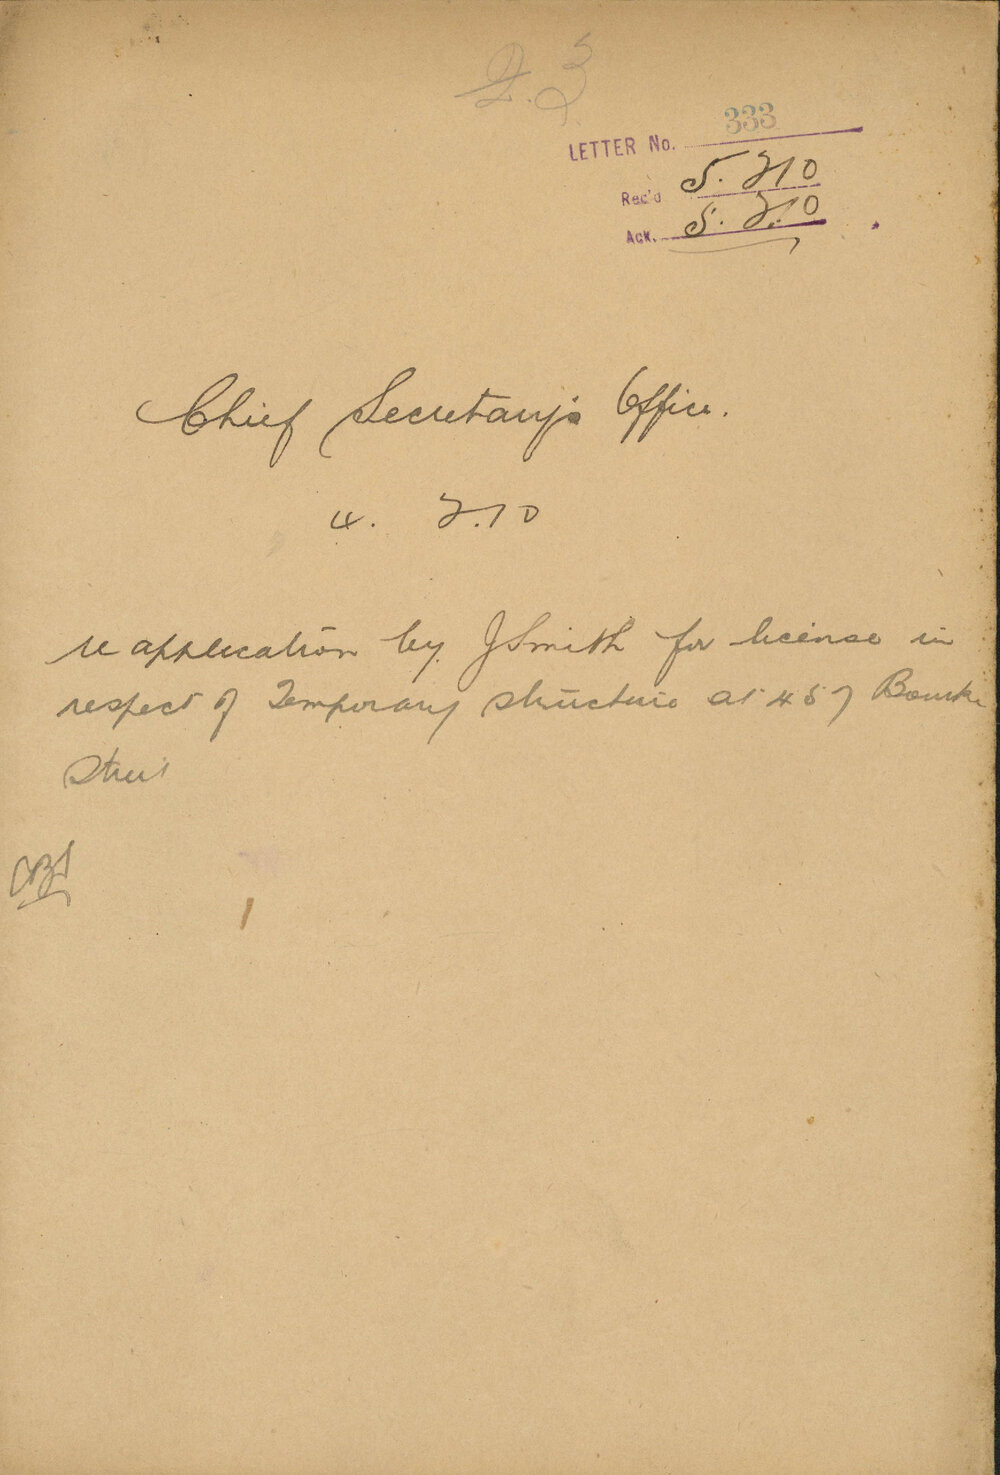 333
LETTER No.
Rec'd 5. 2 10
Ack. 5. 2. 10
Chief Secretary's Office.
4. 2. 10
re application by J Smith for license in
respect of Temporary structure at 457 Bourke
Street